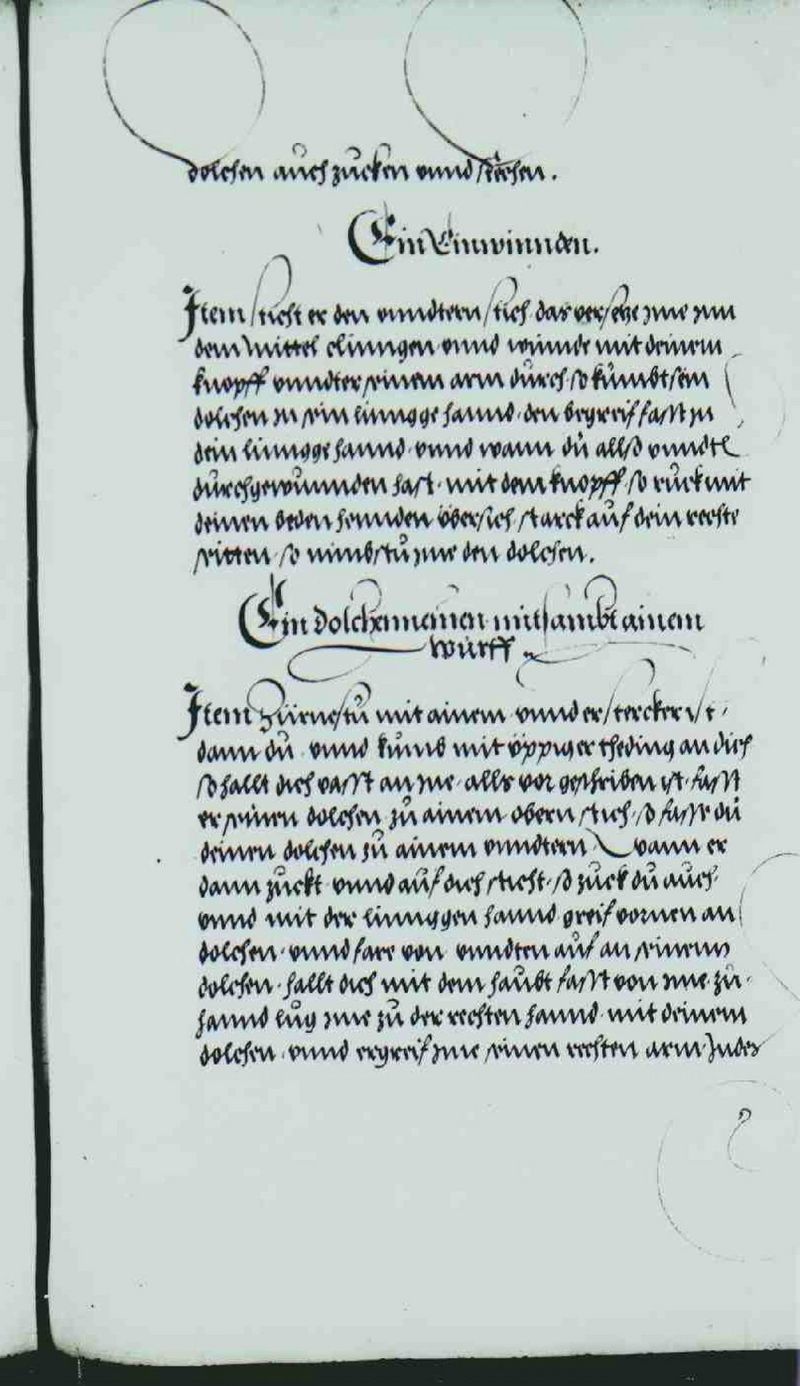 dolchen auch zucken vnnd stechen.
Ein Einwinnden.
Item sticht er den vnndtern stich das versetze jme jnn
dem mittel clinngen vnnd winnde mit deinem
knopff vnndter seinem arm durch so kumbt sein
dolchen jn sein linngge hannd den begreif fasst jn
dein linngge hannd vnnd wann du allso vnndte
durchgewunnden hast mit dem knopff so ruck mit
deinen beden hennden übersich starck auf dein rechte
seitten so nimbstu jme den dolchen.
Ein dolchennemen mitsambt ainem
wurff
Item Zürnestu mit ainem vnnd er stercker ist
dann du vnnd kumb mit üppiger theding an dich
so hallt dich vasst an jne alls vor geschriben ist fasst
er seinen dolchen zu ainem obern stich so fasse du
deinen dolchen zu ainem vnndtern Wann er
dann zuckt vnnd auf dich sticht so zuck du auch
vnnd mit der linnggen hannd greif vornen an
dolchen vnnd fare von vnndten auf an seinem
dolchen hallt dich mit dem haubt fasst von jme zu
hannd lug jme zu der rechten hannd mit deinem
dolchen vnnd ergreif jme seinen rechten arm Indes